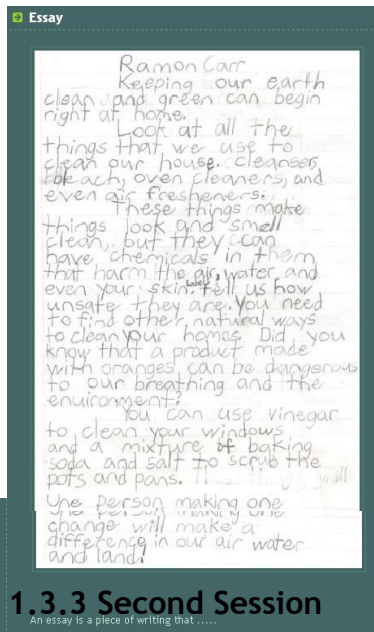 Essay
Ramon Carr
Keeping our earth
clean and green can begin
right at home.
Look at all the
things that we use to
clean our house. cleanser,
bleach, oven cleaners, and
even air fresheners.
These things make
things look and smell
clean, but they can
have chemicals in them
that harm the air, water, and
even your skin. Labels tell us how
unsafe they are. You need
to find other, natural ways
to clean your homes. Did you
know that a product made
with oranges can be dangerous
to our breathing and the
environment?
You can use vinegar
to clean your windows
and a mixture of baking
soda and salt to scrub the
pots and pans.
will
One person making one
change will make a
difference in our air water
and land!
1.3.3 Second Session
An essay is a piece of writing that .....